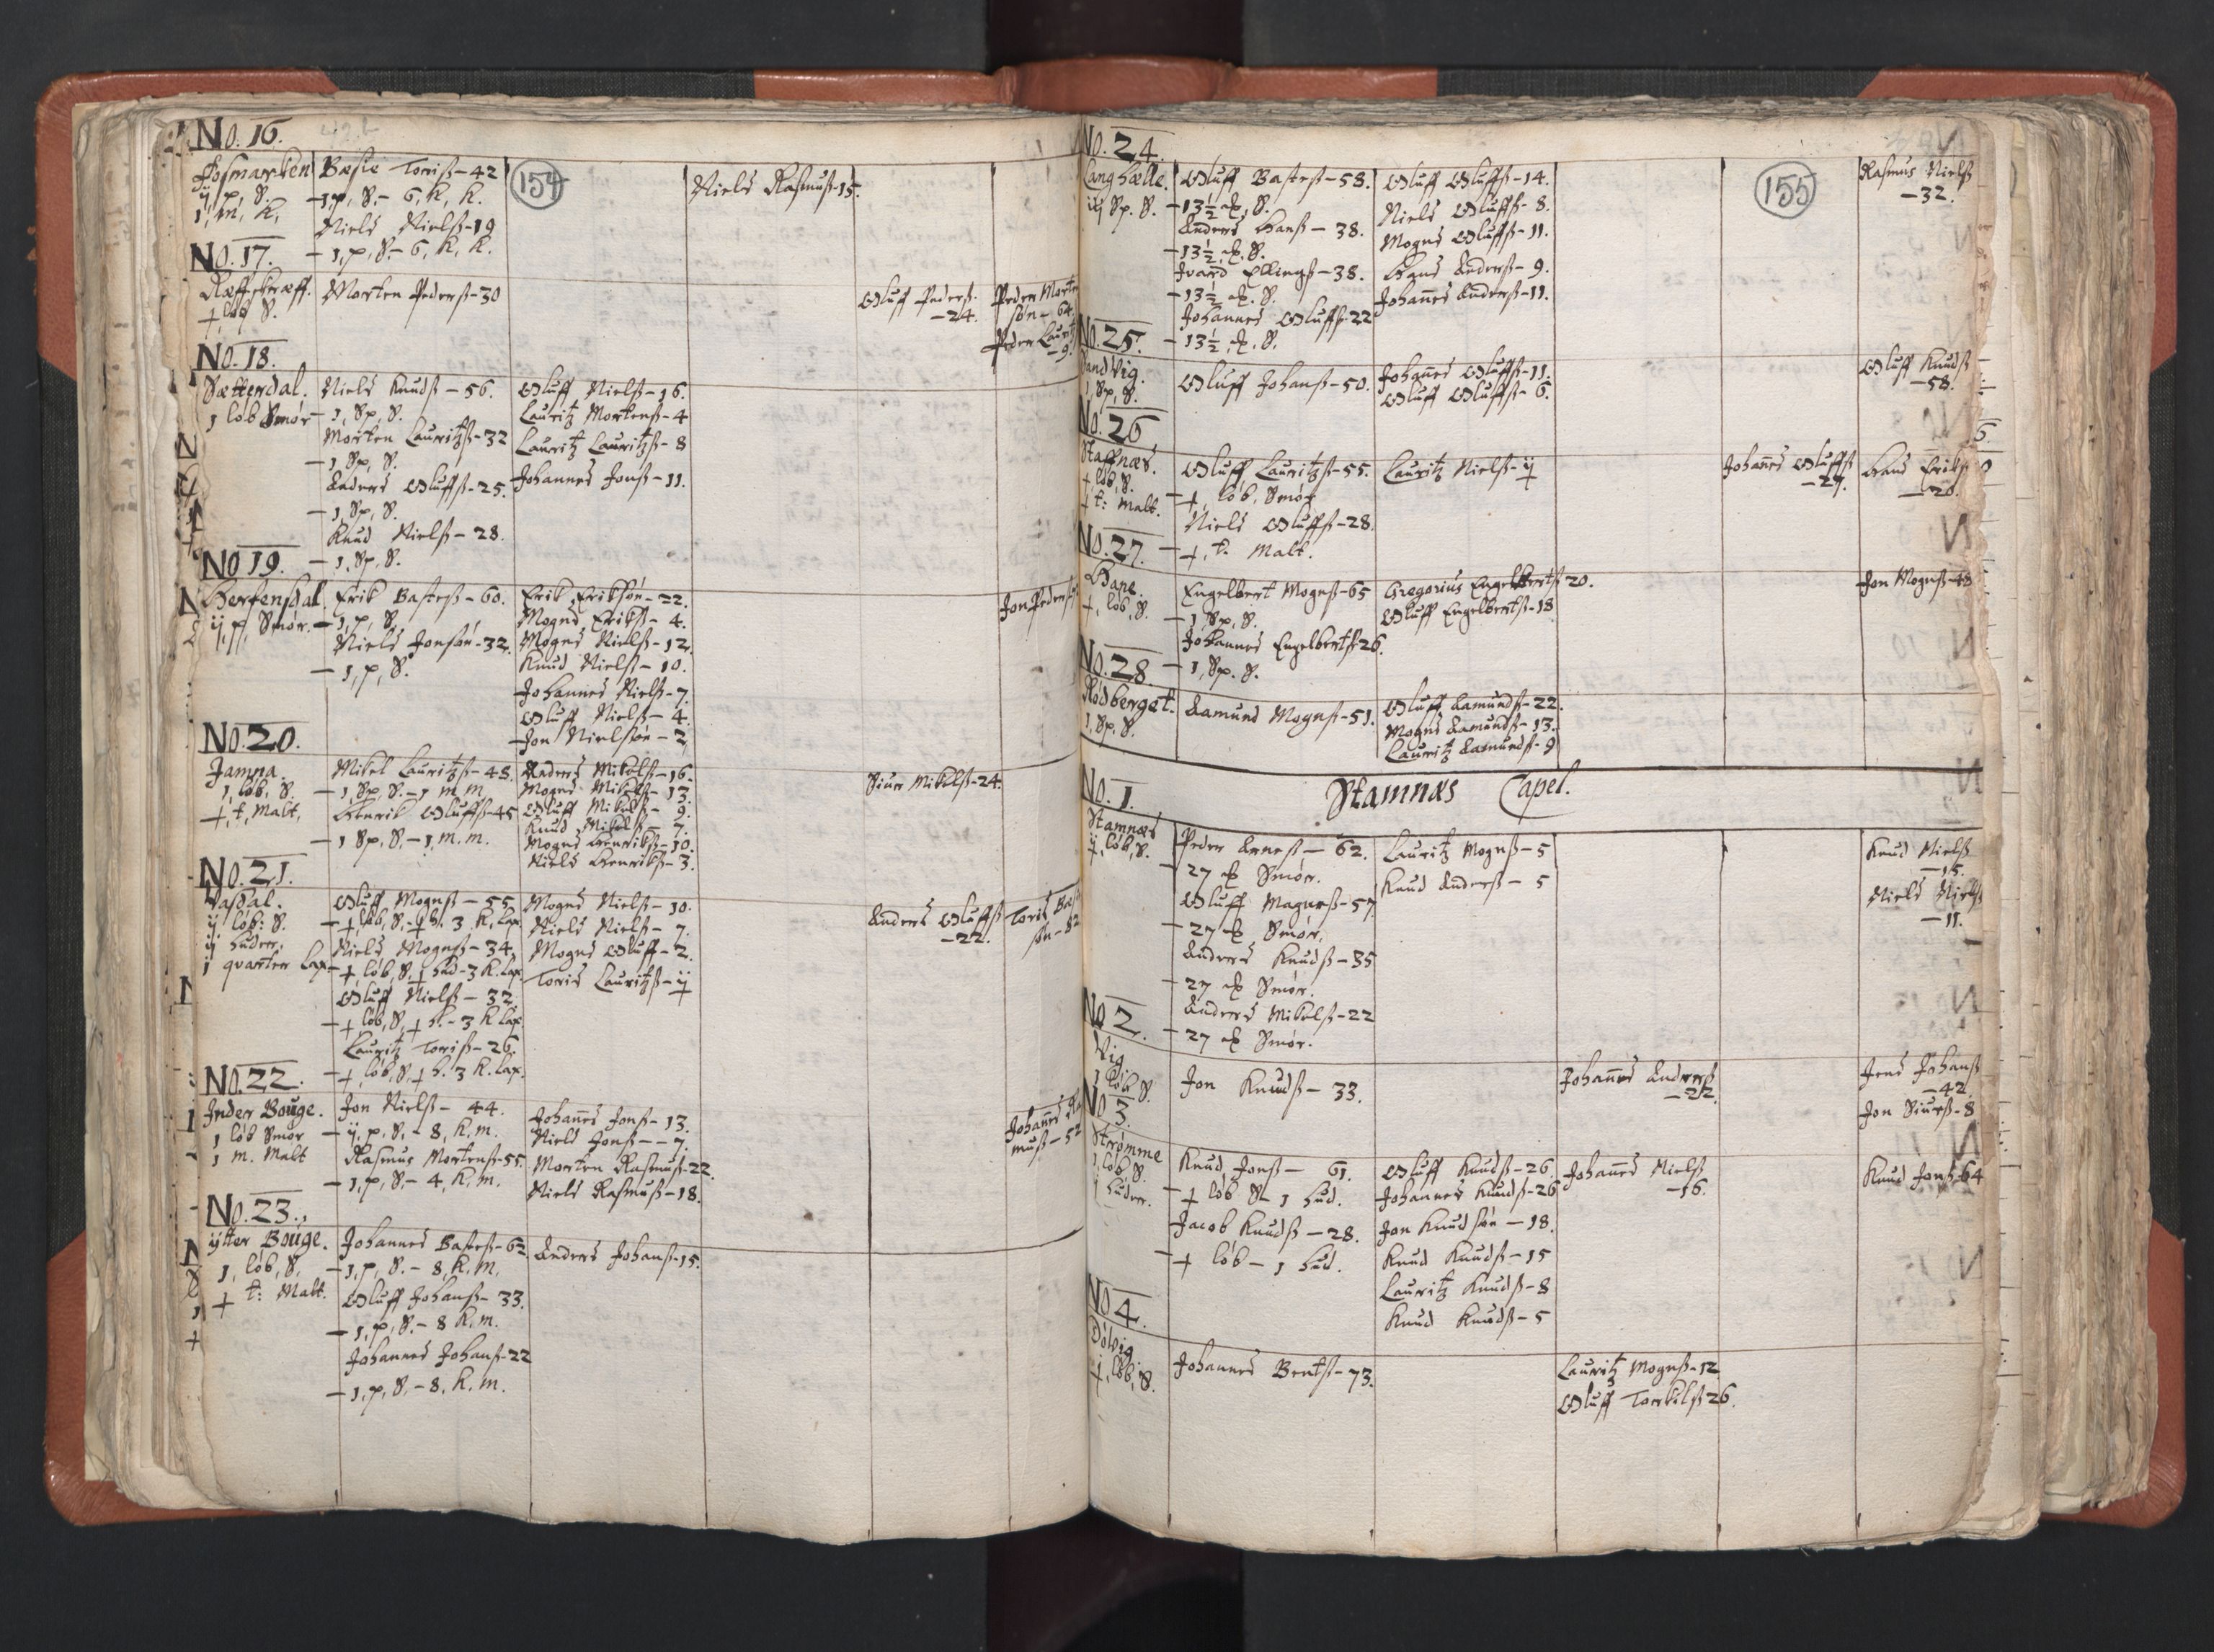 No. 16.
Fosmarcken
ij, p, S.
1, m, K,
Bæsse Torisß – 42
– 1, p, S. – 6, K, K.
Niels Nielsß – 19
– 1, p, S. – 6, K, K.
154
Niels Rasmusß – 15.
No. 17.
Morten Pedersß – 30
Oluff Pedersß
– 24.
Peder Morte
søn – 64.
Peder Laurtz
– 9.
No. 18.
Sætterdal.
1 løb Smør
Niels Knudsß – 56.
– 1, Sp, S.
Morten Lauritzß – 32
– 1 Sp, S.
Anders Oluffsß – 25.
– 1 Sp, S.
Knud Nielsß – 28.
– 1, Sp, S.
Oluff Nielsß – 16.
Lauritz Mortensß – 4
Lauritz Lauritzß – 8
Johannes Jonsß – 11.
No 19.
Herfensdal.
ij, p, Smør.
Erik Bastesß – 60.
– 1, p, S,
Niels Jonsøn – 32.
– 1, p, S.
Erik Eriksøn – 22.
Mogns Eriksß – 4.
Mogns Nielsß – 12.
Knud Nielsß – 10.
Johannes Nielsß – 7.
Oluff Nielsß – 4.
Jon Nielsøn – 2
Jon Pedersß
No. 20.
Jamna.
1, løb, S.
+, t, Malt,
Mikel Lauritzß – 48.
– 1, Sp, S. – 1 m m
Henrik Oluffsß – 45
– 1 Sp, S, – 1, m. m.
Anders Mikelsß – 16.
Mogns Mikelsß – 13.
Oluff Mikelsß – 9.
Knud Mikelsß – 7.
Mogns Henriksß – 10.
Niels Henriksß – 3.
Siuer Mikelsß – 24.
No. 21.
Dasdal.
ij løb: S.
ij huder,
1 quarter Lax
Oluff Mognsß – 55
– +, løb, S, + h. 3 K, Lax.
Niels Mognsß – 34.
– +, løb, S, + hud – 3 K. Lax.
Oluff Nielsß – 32.
– + løb, S, + h. – 3 K Lax.
Lauritz Torisß – 26.
– +, løb, S, + h. 3 K. Lax.
Mogns Nielsß – 10.
Niels Nielsß – 7.
Mogns Oluff – 2.
Toris Lauritzß – ij
Anders Oluffsß
– 22.
Toris Bast
søn – 82
No. 22.
Inder Bouge.
1 løb Smør
1 m. Malt
Jon Nielsß – 44.
– ij, p, S, – 8, K. m.
Rasmus Mortensß – 55.
– 1, p, S, – 4, K, m.
Johannes Jonsß – 13.
Niels Jonsß – – 7.
Morten Rasmusß – 22
Niels Rasmusß – 18.
Johannes Ra
musß – 52
No. 23.
ytter Bouge.
1, løb, S,
+ t: Malt.
Johannes Bastesß – 62.
– 1, p, S. – 8, K. m.
Oluff Johansß – 33.
– 1, p, S. – 8 K. m.
Johannes Johansß – 22
– 1, p, S. – 8, K. m.
Anders Johansß – 15.
No. 24.
Langhælle.
iij Sp. S.
Oluff Bastesß – 58.
– 13½ S.
Anders Hansß – 38.
– 13½ S.
Ivard Ellingsß – 38.
– 13½ S.
Johannes Oluffsß – 22
– 13½ S.
Oluff Oluffsß – 14.
Niels Oluffsß – 8.
Mogns Oluffsß – 11.
Hans Andersß – 9.
Johannes Andersß – 11.
155
Rasmus Nielsß
– 32.
No. 25.
Sandvig.
1 Sp, S.
Oluff Johansß – 50.
Johannes Oluffsß – 11.
Oluff Oluffsß – 6.
Oluff Knudsß
– 58.
No. 26
Staffnæs.
+ løb, S.
+ t: Malt.
Oluff Lauritzß – 55.
– +, løb, Smør
Niels Oluffsß – 28.
– +, t. Malt.
Lauritz Nielsß – ij
Johannes Oluffsß
– 27.
Hans Eriksß
– 20.
No. 27.
Hane.
+, løb, S.
Engelbert Mognsß – 65
– 1, Sp, S.
Johannes Engelbertsß – 26.
– 1, Sp. S.
Gregorius Engelbertsß – 20.
Oluff Engelbertsß – 18
Jon Mognsß – 48
No. 28.
Rødberget.
1, Sp. S.
Aamund Mognsß – 51.
Oluff Aamundsß – 22.
Mogns Aamundsß – 13.
Lauritz Aamundsß – 9
Stamnæs Capel.
No. 1.
Stamnæs
ij, løb, S.
Peder Arnesß – 62.
– 27 Smør.
Oluff Magnesß – 57
– 27 Smør,
Anders Knudsß – 35
– 27 Smør.
Anders Mikelsß – 22
– 27 Smør.
Lauritz Mognsß – 5
Knud Andersß – 5
Knud Nielsß
– 15.
Niels Nielsß
– 11.
No 2.
Vig
1 løb S.
Jon Knudsß – 33.
Johannes Andersß
– 22.
Jens Johansß
– 42
Jon Siursß – 8
No 3.
Strømme
1, løb S.
1 huder.
Knud Jonsß – 61.
– + løb S – 1 hud.
Jacob Knudsß – 28.
– + løb – 1 hud.
Oluff Knudsß – 26
Johannes Knudsß – 26
Jon Knudsøn – 18.
Knud Knudsß – 15
Lauritz Knudsß – 8
Knud Knudsß – 5
Johannes Nielsß
– 16.
Knud Jonsß – 64
No 4.
Dølvig
+, løb, S.
Johannes Bentsß – 73.
Lauritz Mognsß – 12
Oluff Torkilsß – 26.